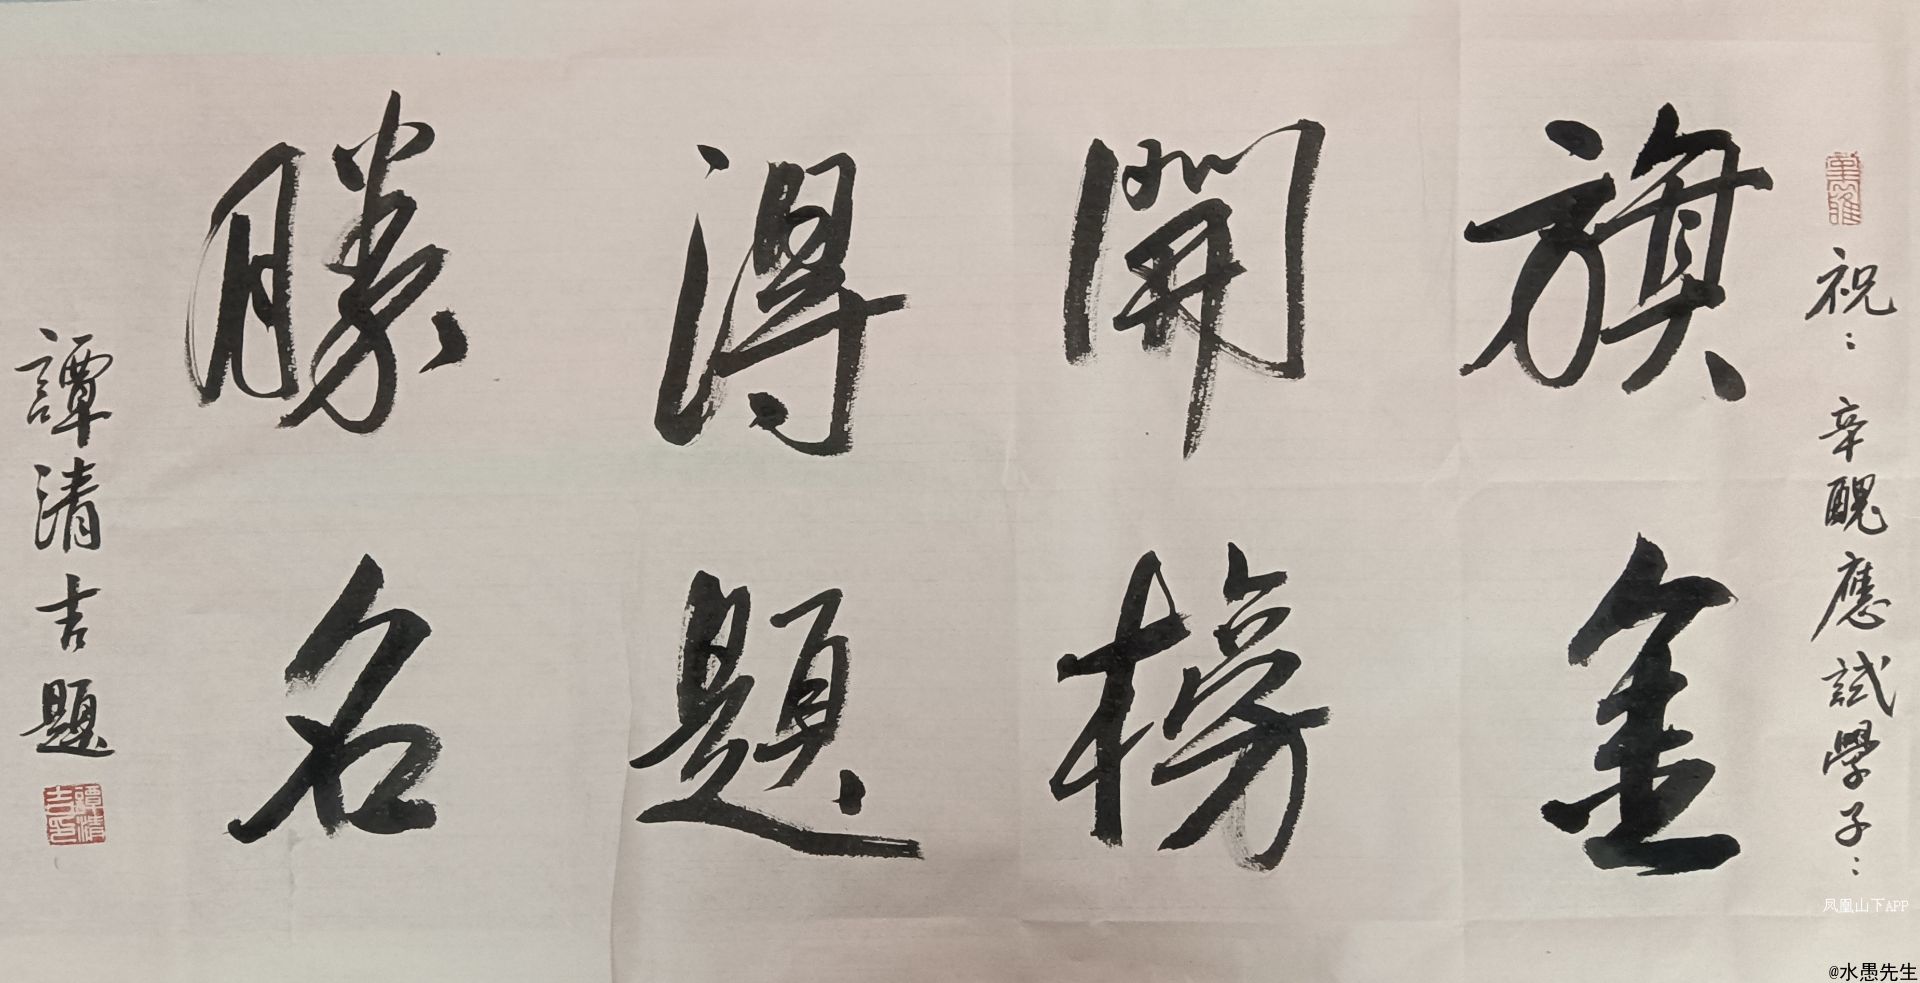 祝：辛醜應試學子：
旗開得勝
金榜題名
譚清吉題
譚清吉印
凤凰山下APP
@水愚先生